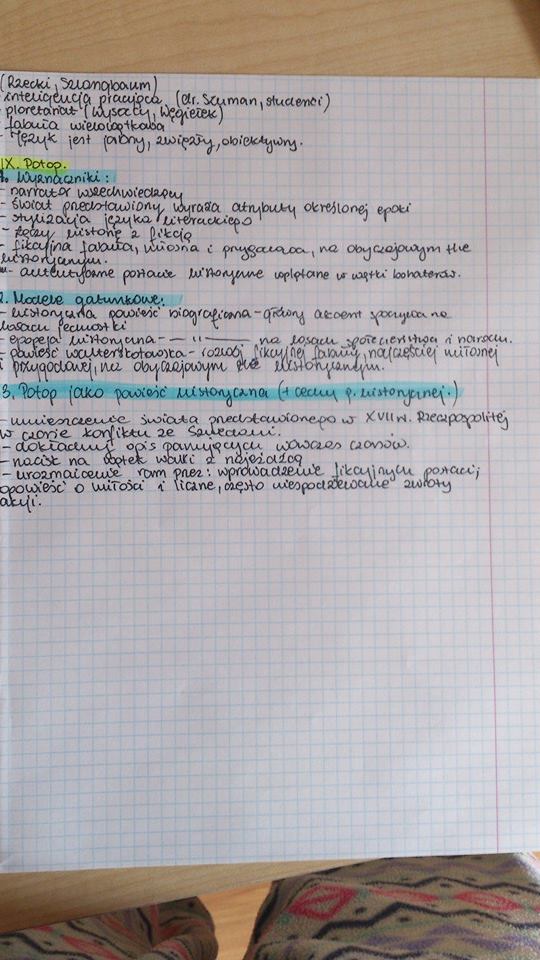 (Rzecki, Szlangbaum)
- inteligencja pracująca (dr. Szuman, studenci)
- ploretariat (Wysoccy, Węgiełek)
- fabuła wielowątkowa
- Język jest jasny, zwięzły, obiektywny.
IX. Potop.
1. Wyznaczniki:
- narrator wszechwiedzący
- świat przedstawiony wyraża atrybuty określonej epoki
- stylizacja języka literackiego
- łączy historię z fikcją
- fikcyjna fabuła, miłosna i przygodowa, na obyczajowym tle
historycznym.
- autentyczne postacie historyczne wplątane w wątki bohaterów.
2. Modele gatunkowe:
- historyczna powieść biograficzna - główny akcent spoczywa na
losach jednostki
- epopeja historyczna - — 11 — na losach społeczeństwa i narodu.
- powieść walterskotowska - rozwój fikcyjnej fabuły, najczęściej miłosnej
i przygodowej, na obyczajowym tle historycznym.
3. Potop jako powieść historyczna (+ cechy p. historycznej.)
- umieszczenie świata przedstawionego w XVII w. Rzeczpospolitej
w czasie konfliktu ze Szwedami.
- dokładny opis panujących wówczas czasów.
- nacisk na wątek walki z najeźdźcą
- urozmaicenie ram przez: wprowadzenie fikcyjnych postaci;
opowieść o miłości i liczne, często niespodziewane zwroty
akcji.